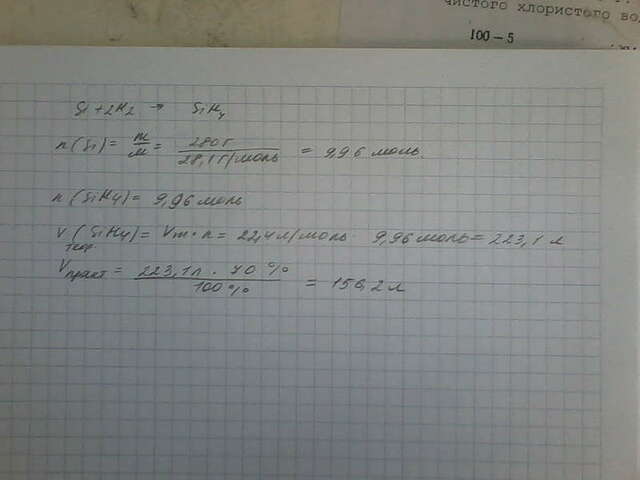 чистого хлористого во
100-5
Si + 2H2 → SiH4
n(Si) = m/M = 280г/28,1г/моль = 9,96 моль.
n(SiH4) = 9,96 моль
V теор. (SiH4) = Vm · n = 22,4 л/моль · 9,96 моль = 223,1 л
Vпракт = 223,1л · 70 %/100 % = 156,2 л